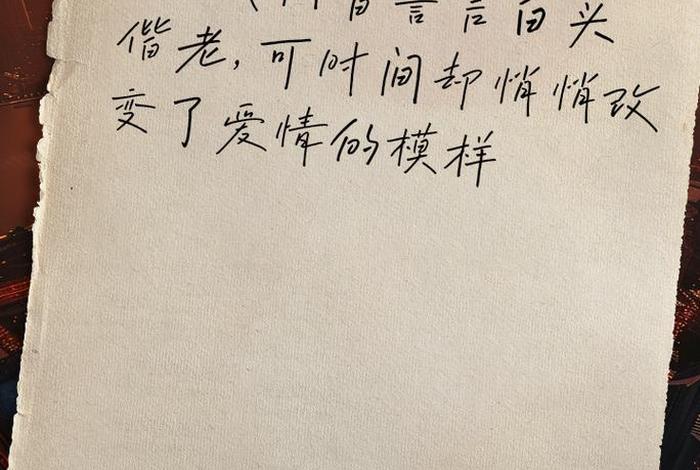 言言白头
偕老，可时间却悄悄改
变了爱情的模样